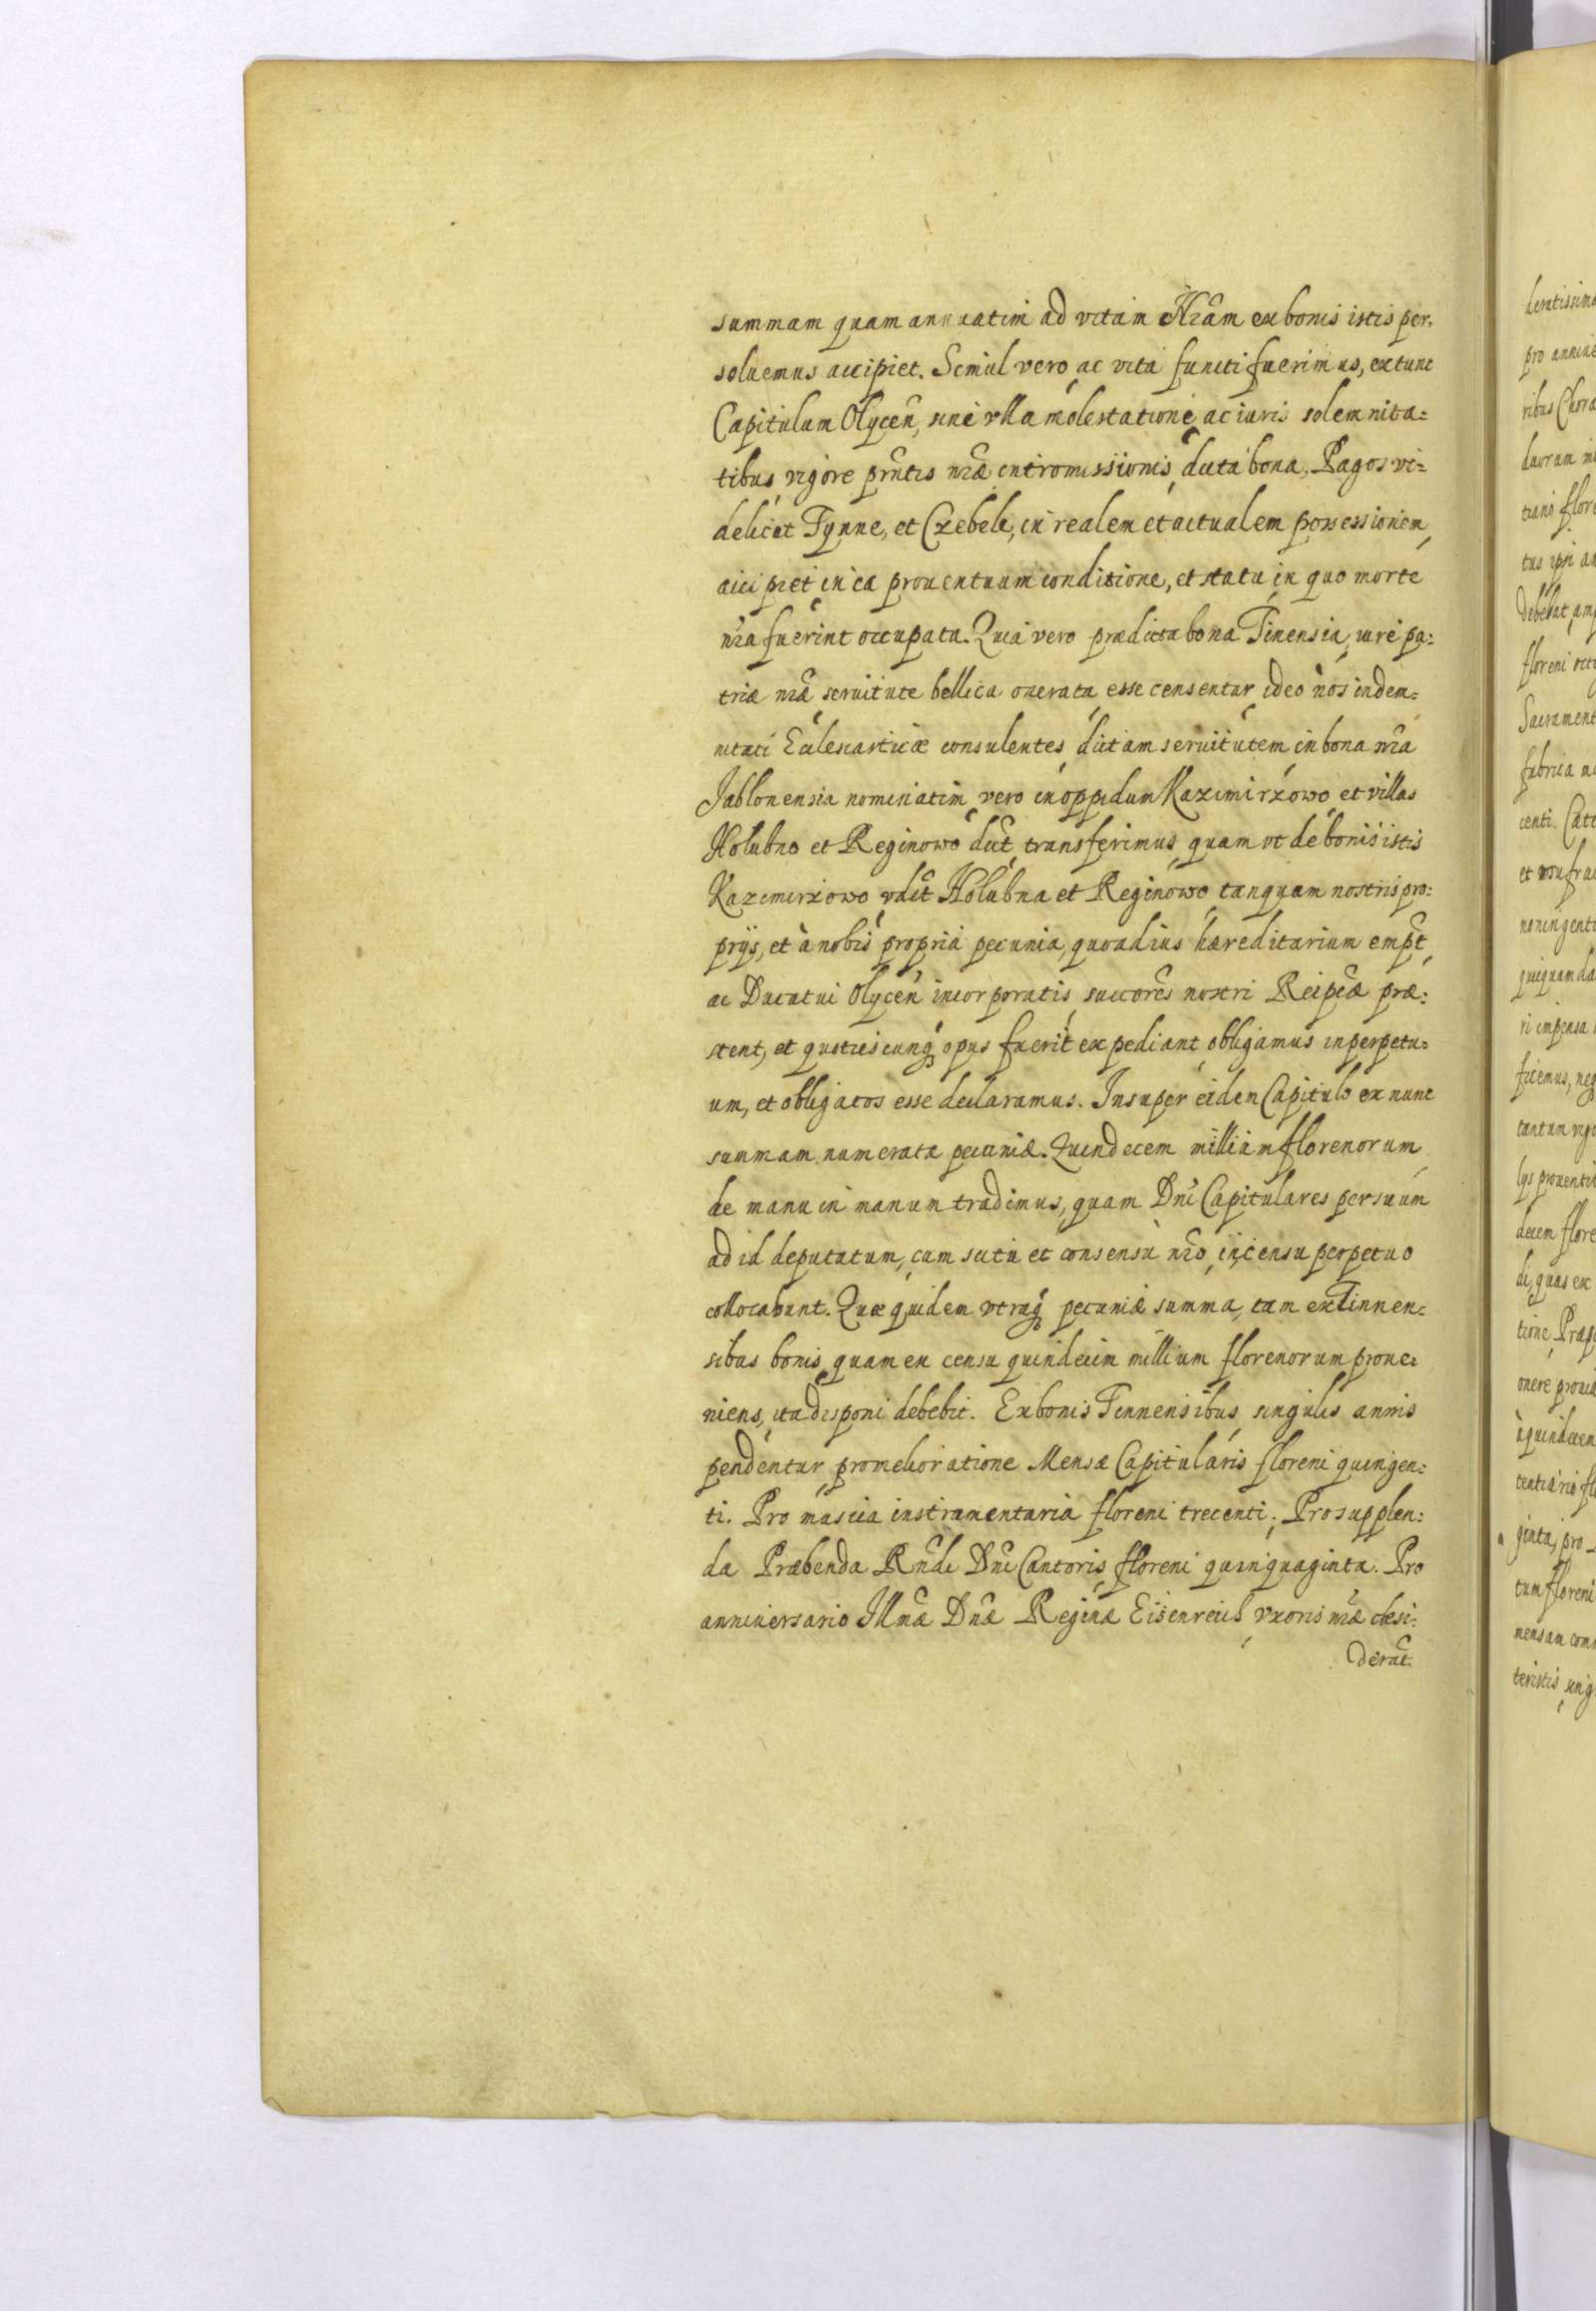 summam quam annuatim ad vitam Nram ex bonis istis per=
soluemus accipiet. Simul vero ac vita functi fuerimus, extunc
Capitulum Olycen̄, sine vlla molestatione ac iuris solemnita=
tibus vigore prn̄tis nr̄æ intromissionis dicta bona, Pagos vi=
delicet Tynne, et Czebele, in realem et actualem possessionem
accipiet in ea prouentuum conditione, et statu in quo morte
nr̄a fuerint occupata. Quia vero prædicta bona Tinensia, iure pa=
triæ nr̄æ seruitute bellica onerata esse censentur ideo nos indem=
nitati Ecclesiasticæ consulentes dictam seruitutem in bona nr̄a
Jablonensia nominatim vero in oppidum Kazimirzowo et villas
Holubno et Reginowo dict̄ transferimus quam vt de bonis istis
Kazimirzowo vdlt̄ Holubna et Reginowo tanquam nostris pro=
prijs, et à nobis propria pecunia, quoad ius hæreditarium empt̄
ac Ducatui Olycen̄ incorporatis succores̄ nostri Reipcǣ præ=
stent, et quotiescunq́ȝ opus fuerit expediant obligamus in perpetu=
um, et obligatos esse declaramus. Insuper eidem Capitulo ex nunc
summam numeratæ pecuniæ. Quindecem millium florenorum
de manu in manum tradimus, quam Dn̄i Capitulares per suum
ad id deputatum, cum scitu et consensu nr̄o in censu perpetuo
collocabunt. Quæ quidem vtraq́ȝ pecuniæ summa, tam ex Tinnen=
sibus bonis quam ex censu quindecim millium florenorum proue=
niens, ita disponi debebit. Ex bonis Tinnensibus singulis annis
pendentur pro melioratione Mensæ Capitularis floreni quingen=
ti. Pro musica instrumentaria floreni trecenti. Pro supplen=
da Præbenda Rndi Dn̄i Cantoris floreni quinquaginta. Pro
anniuersario Illmǣ Dn̄æ Reginæ Eisenreich vxoris nr̄æ desi=
derat̄